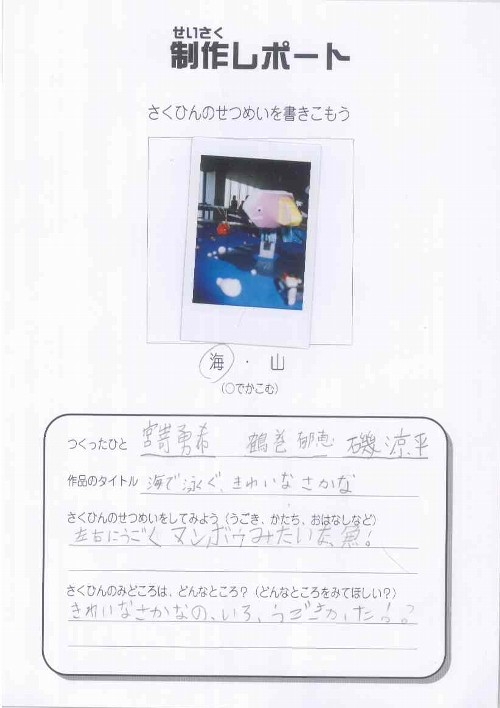 せいさく
制作レポート
さくひんのせつめいを書きこもう
海 ・ 山
(○でかこむ)
つくったひと 宮嵜勇希 鶴巻郁恵 磯涼平
作品のタイトル 海で泳ぐ、きれいなさかな
さくひんのせつめいをしてみよう(うごき、かたち、おはなしなど)
左右にうごく マンボウみたいな魚!
さくひんのみどころは、どんなところ?(どんなところをみてほしい?)
きれいなさかなの、いろ、うごき、かたち!?